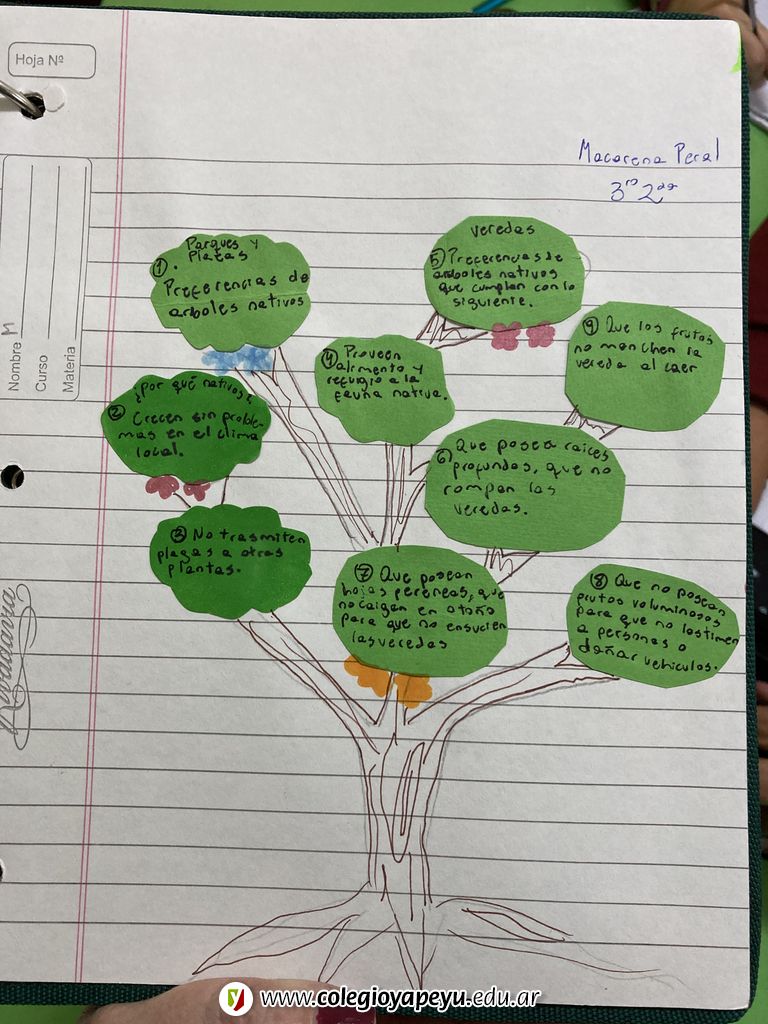 Hoja Nº
Nombre M
Curso
Materia
Rivadavia
Macarena Peral
3ro 2da
Parques y
Plazas
① .
Preferencias de
arboles nativos
¿Por qué nativos?
② Crecen sin proble-
mas en el clima
local.
③ No trasmiten
plagas a otras
plantas.
④ Proveen
alimento y
refugio a la
fauna nativa.
veredas
⑤ Preferencias de
arboles nativos
que cumplan con lo
siguiente.
⑥ Que posea raices
profundas, que no
rompan las
veredas.
⑦ Que posean
hojas perennes, que
no caigan en otoño
para que no ensucien
las veredas
⑧ Que no posean
frutos voluminosos
para que no lastimen
a personas o
dañar vehiculos.
⑨ Que los frutos
no manchen la
vereda al caer
www.colegioyapeyu.edu.ar